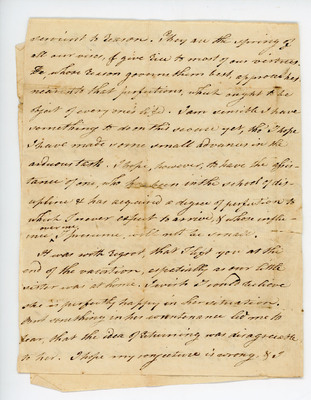 servient to reason. They are the spring of
all our vices, & give rise to most of our virtues.
He, whose reason governs them best, approaches
nearest to that perfection, which ought to be
object of every one's life. I am sensible I have
something to do on this score yet, tho' I hope
I have made some small advances in the
arduous task. I hope, however, to have the assis-
tance of one, who has been in the school of dis-
cipline & has acquired a degree of perfection to
which I never expect to arrive, & whose influ-
over me
ence, I presume, will not be small.
It was with regret, that I left you at the
end of the vacation, especially as our little
sister was at home. I wish I could believe
she is perfectly happy in her situation.
But something in her countenance led me to
fear, that the idea of returning was disagreeable
to her. I hope my conjecture is wrong, & I